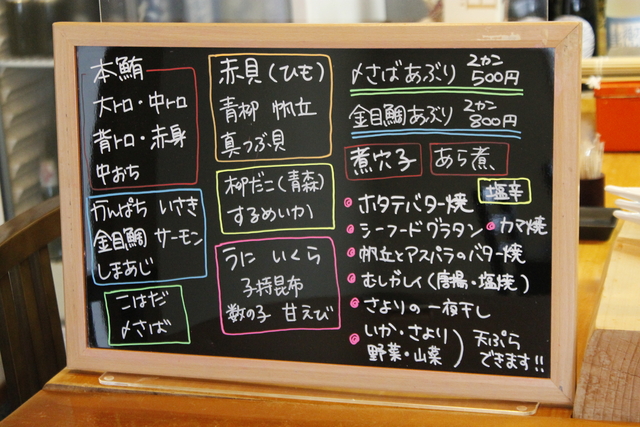 本鮪
大トロ・中トロ
背トロ・赤身
中おち
かんぱち いさき
金目鯛 サーモン
しまあじ
こはだ
〆さば
赤貝(ひも)
青柳 帆立
真つぶ貝
柳だこ(青森)
するめいか
うに いくら
子持昆布
数の子 甘えび
〆さばあぶり 2カン 500円
金目鯛あぶり 2カン 800円
煮穴子 あら煮
塩辛
ホタテバター焼
シーフードグラタン カマ焼
帆立とアスパラのバター焼
むしガレイ(唐揚・塩焼)
さよりの一夜干し
いか・さより
野菜・山菜
天ぷら
できます!!